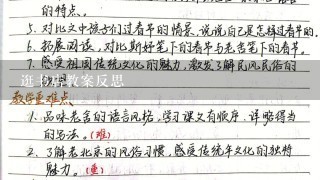 的特点。
5. 对比文中孩子们过春节的情景,说说自己是怎样过春节的。
6. 拓展阅读,对比斯妤笔下的春节与老舍笔下的春节。
7. 感受祖国传统文化的魅力,激发了解民风民俗的
逛书店教案反思
教学重难点
1. 品味老舍的语言风格,学习课文有顺序、详略得当
的写法。(难)
2. 了解老北京的风俗习惯,感受传统年文化的独特
魅力。(重)